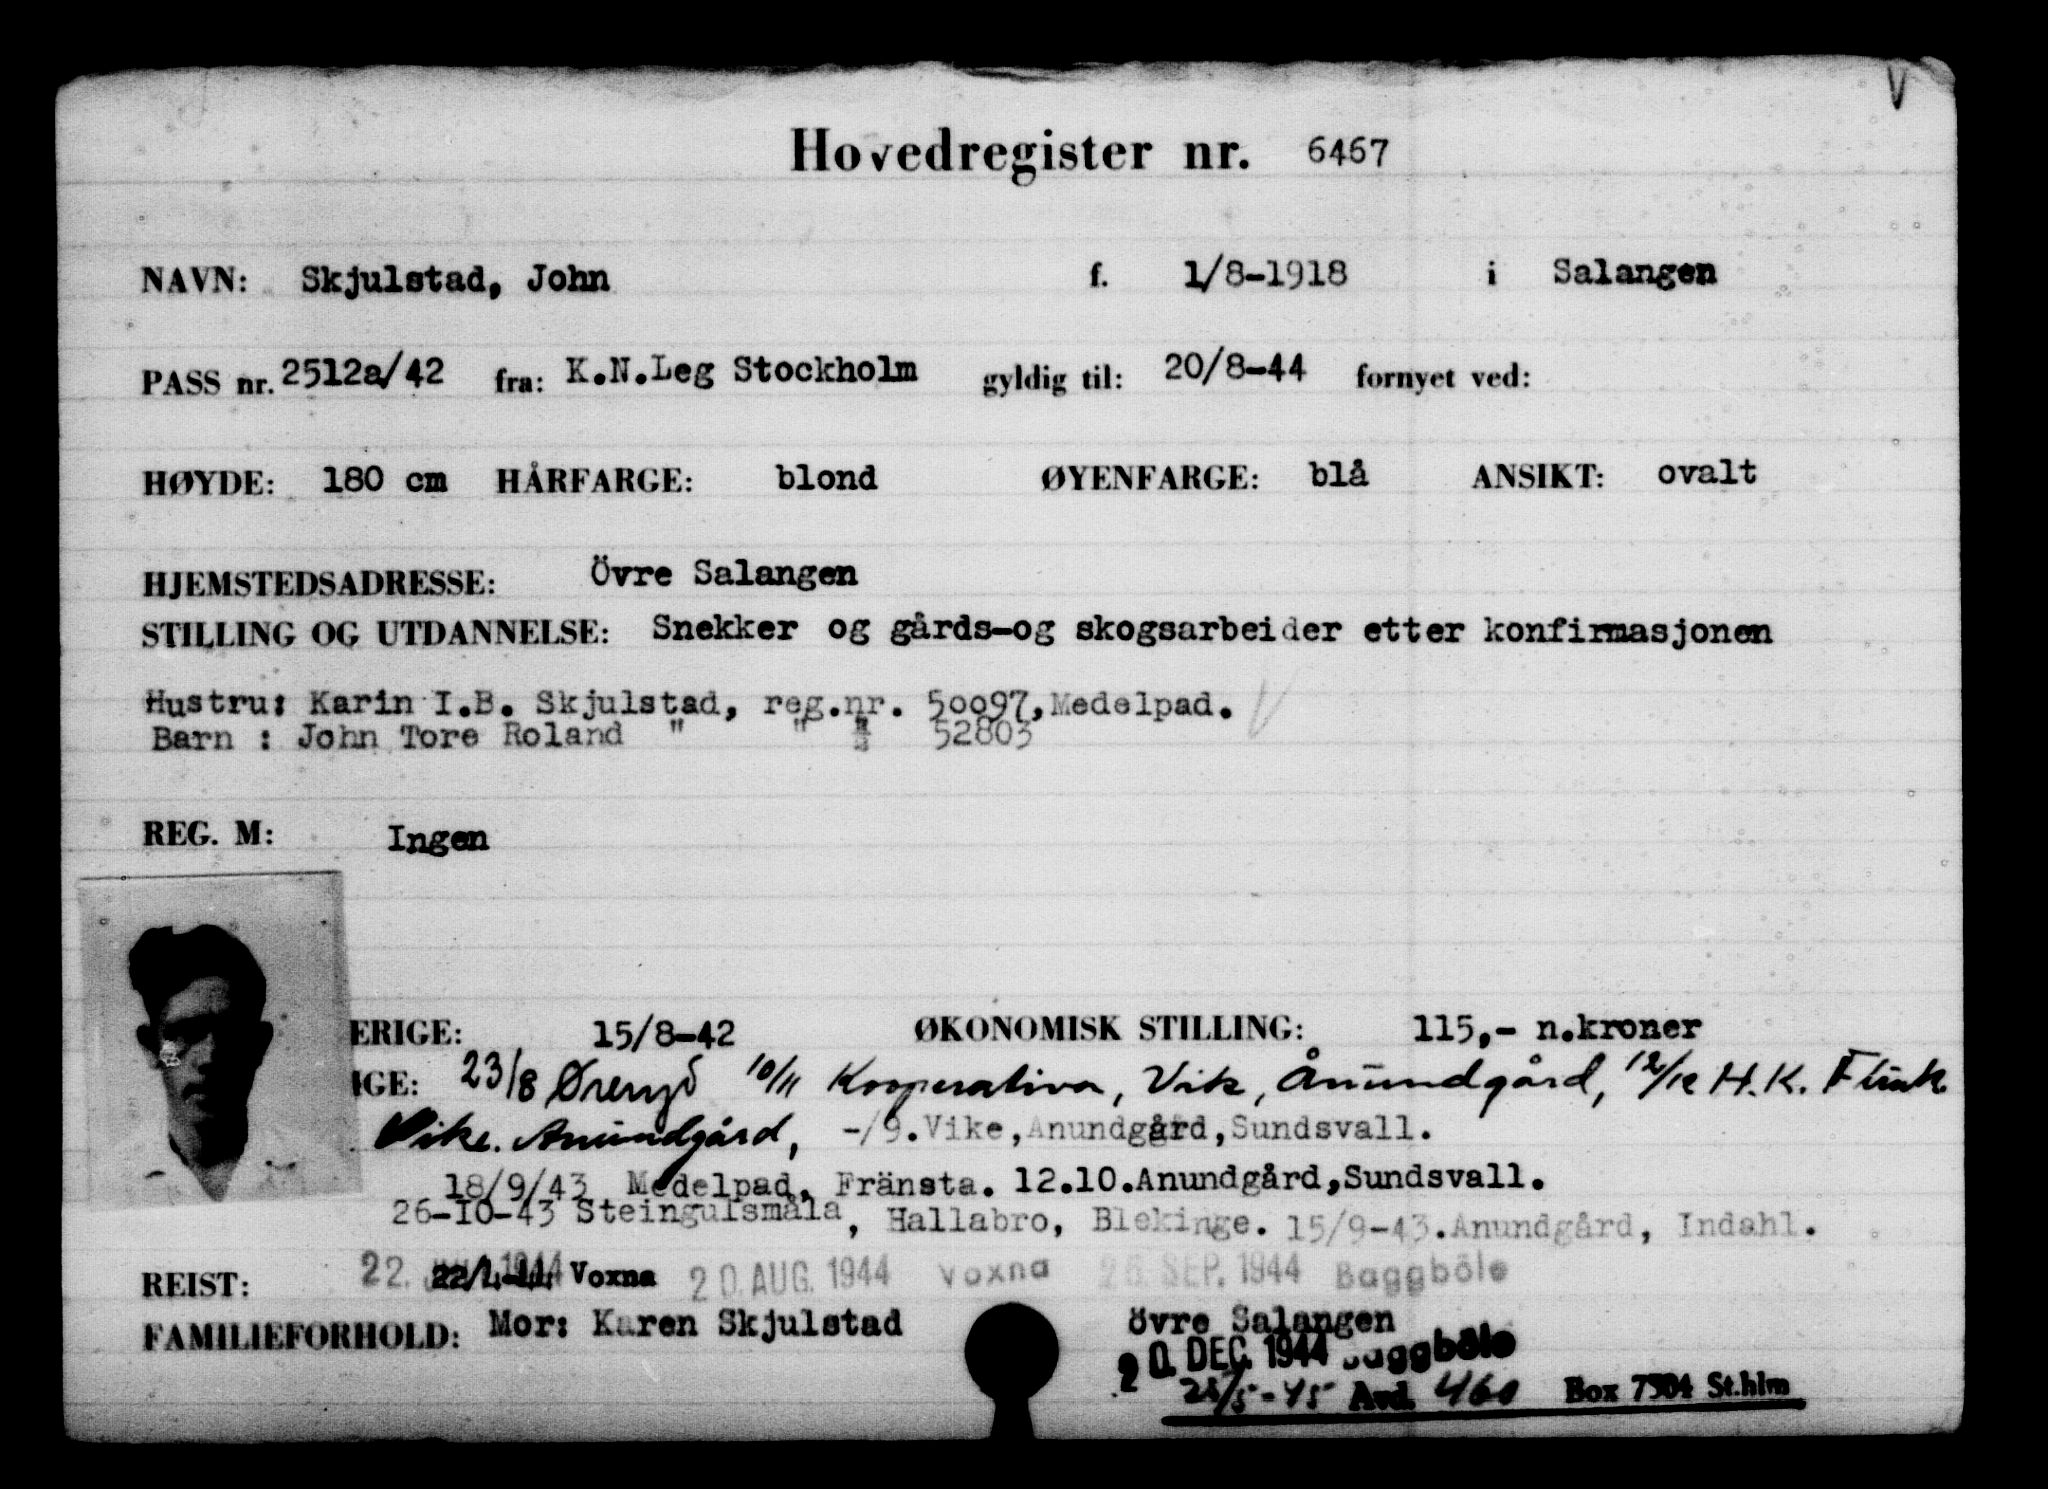 Hovedregister nr. 6467
NAVN: Skjulstad, John f. 1/8-1918 i Salangen
PASS nr. 2512a/42 fra: K.N.Leg Stockholm gyldig til: 20/8-44 fornyet ved:
HØYDE: 180 cm HÅRFARGE: blond ØYENFARGE: blå ANSIKT: ovalt
HJEMSTEDSADRESSE: Övre Salangen
STILLING OG UTDANNELSE: Snekker og gårds-og skogsarbeider etter konfirmasjonen
Hustru: Karin I.B. Skjulstad, reg.nr. 50097, Medelpad.
Barn : John Tore Roland " " " 52803
REG. M: Ingen
ERIGE: 15/8-42 ØKONOMISK STILLING: 115,- n.kroner
IGE: 23/8 Øreryd 10/11 Kooperativa, Vik, Ånundgård, 12/12 H.K. Flink
Vike. Anundgård, -/9.Vike, Anundgård, Sundsvall.
18/9/43 Medelpad, Fränsta. 12.10.Anundgård, Sundsvall.
26-10-43 Steingulsmåla, Hallabro, Blekinge. 15/9-43. Anundgård, Indahl.
REIST: 22. 1944 22/4-44 Voxna 20. AUG. 1944 Voxna 26. SEP. 1944 Baggböle
FAMILIEFORHOLD: Mor: Karen Skjulstad övre Salangen
20. DEC. 1944 Baggböle
25/5-45 Avd. 460 Box 7304 St.hlm